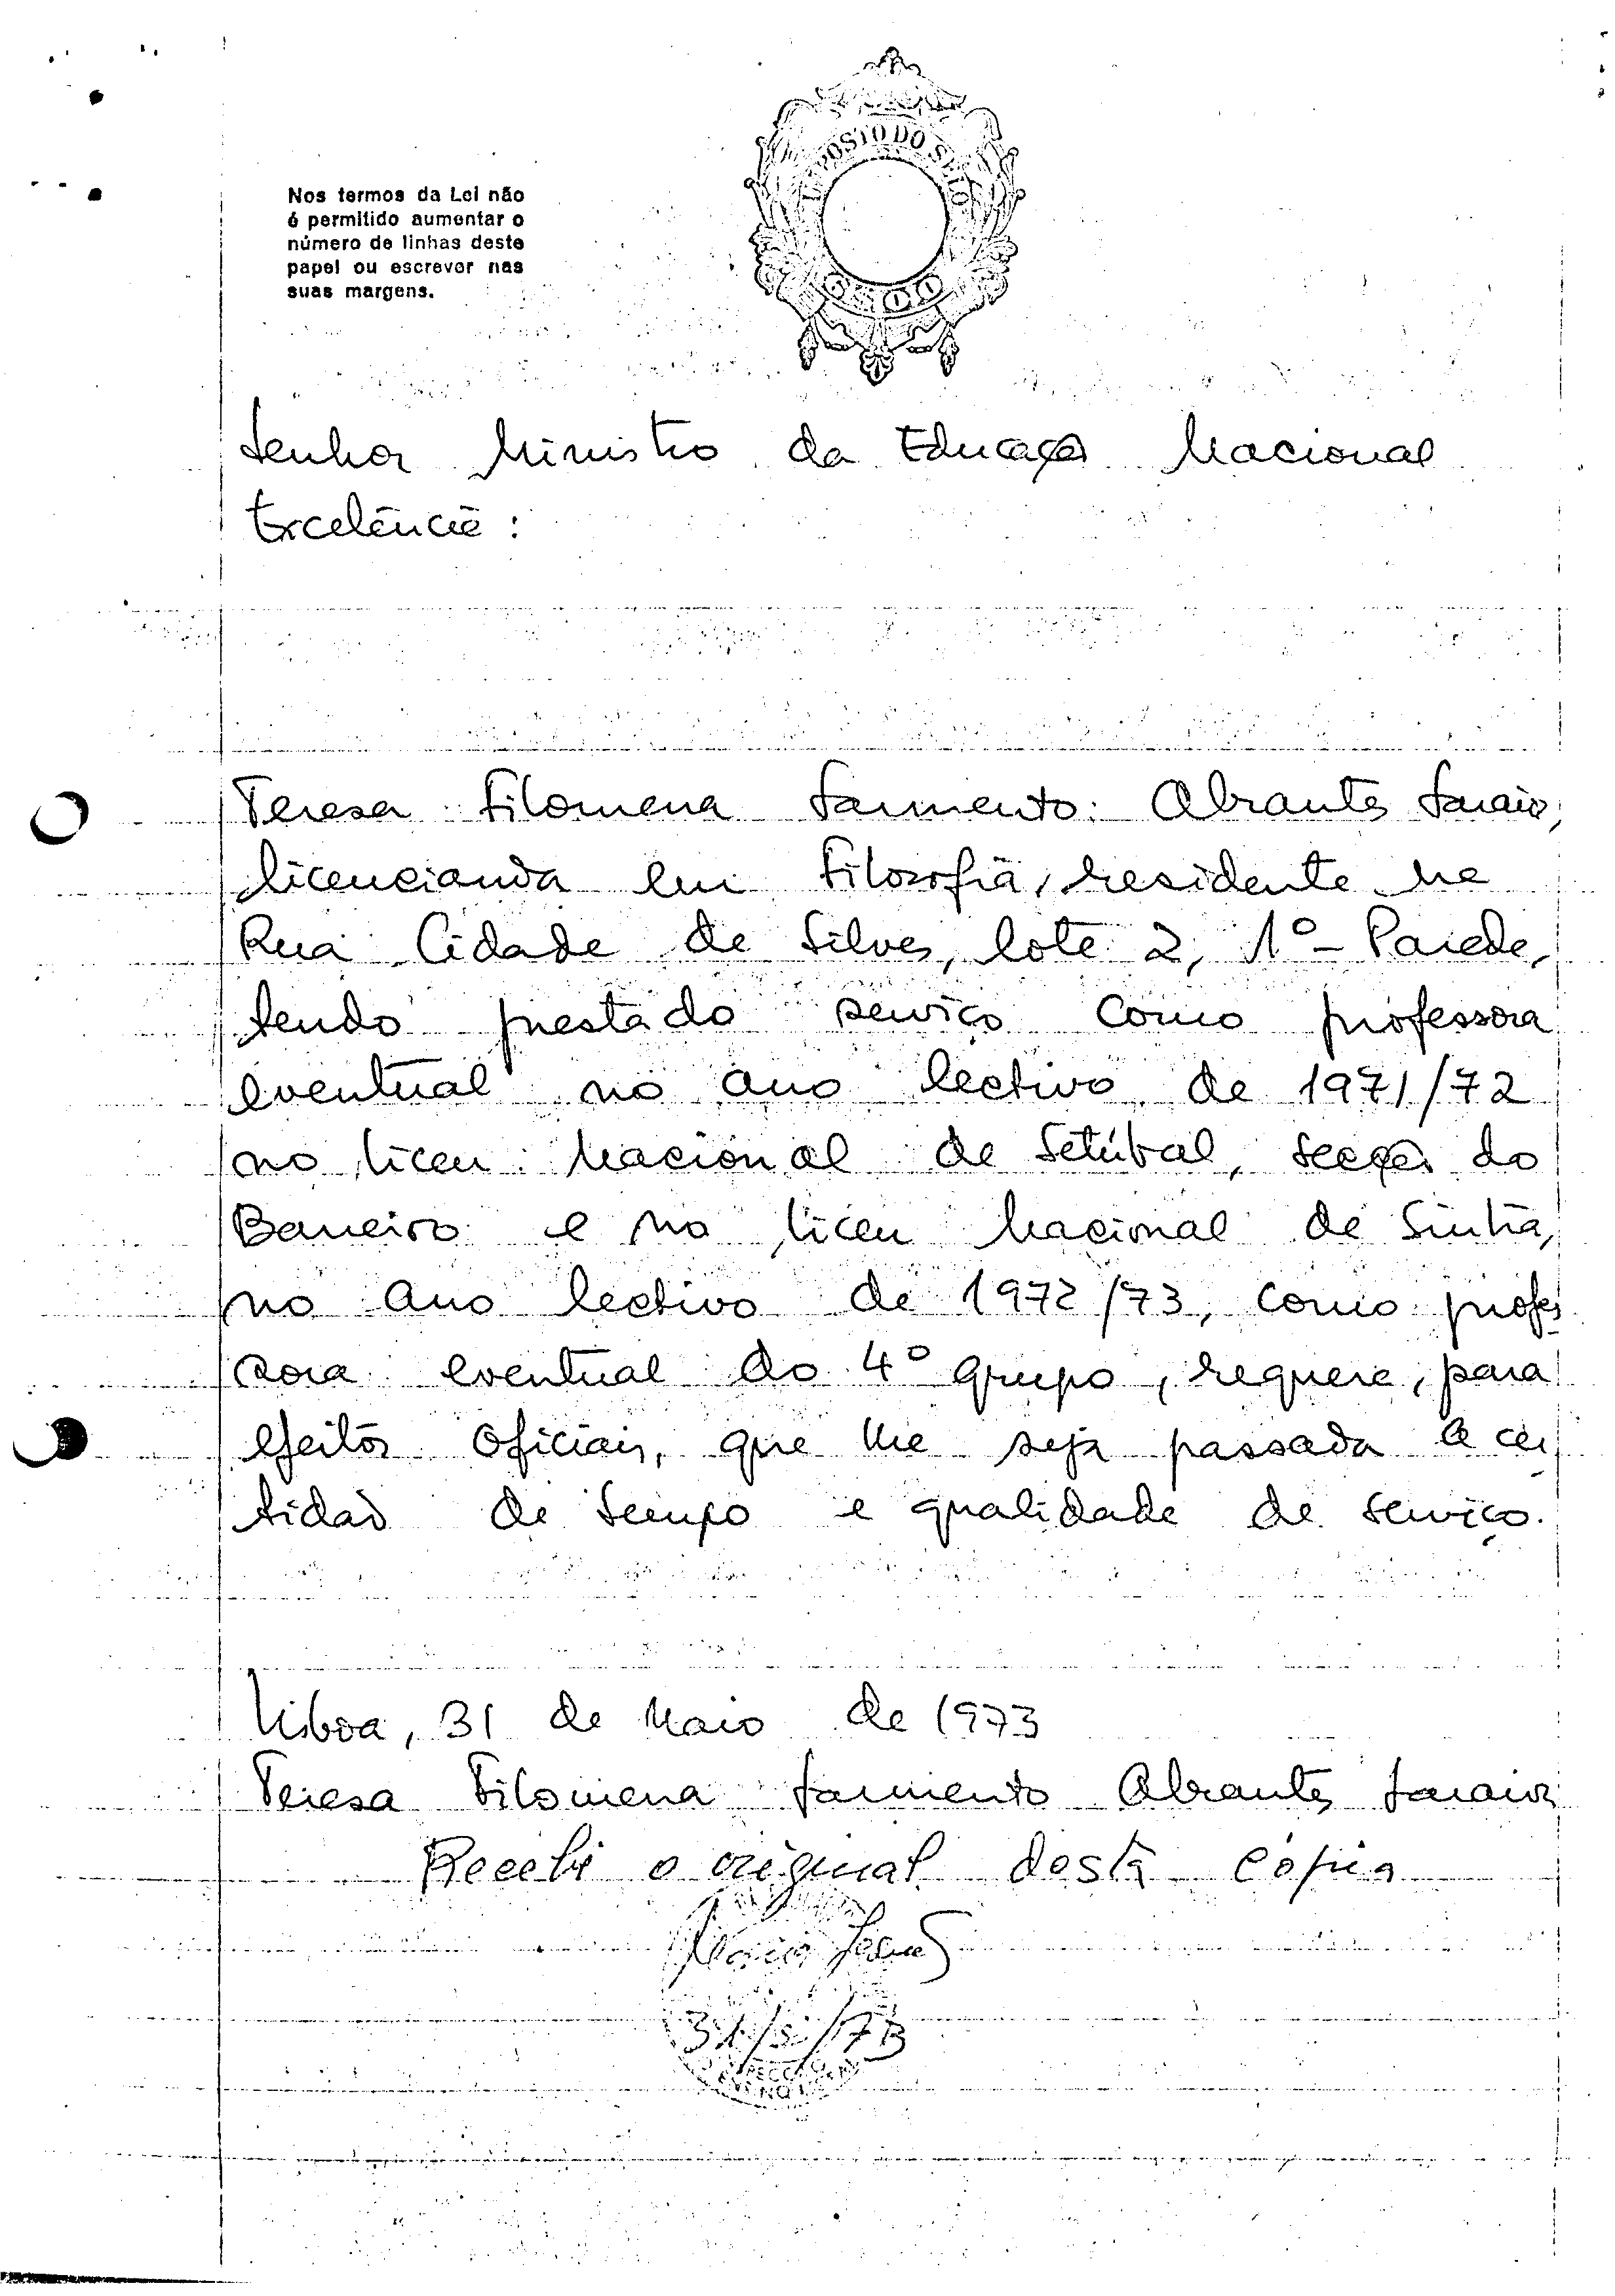 Nos termos da Lei não
é permitido aumentar o
número de linhas deste
papel ou escrever nas
suas margens.
IMPOSTO DO SELO
6$00
Senhor Ministro da Educação Nacional
Excelência:
Teresa Filomena Sarmento Abrantes Saraiva,
licencianda em Filosofia, residente na
Rua Cidade de Silves, lote 2, 1º - Parede,
tendo prestado serviço como professora
eventual no ano lectivo de 1971/72
no Liceu Nacional de Setúbal, secção do
Barreiro e no Liceu Nacional de Sintra,
no ano lectivo de 1972/73, como profes
sora eventual do 4º grupo, requere, para
efeitos oficiais, que lhe seja passada a cer
tidão de tempo e qualidade de serviço.
Lisboa, 31 de Maio de 1973
Teresa Filomena Sarmento Abrantes Saraiva
Recebi o original desta cópia
31/5/73